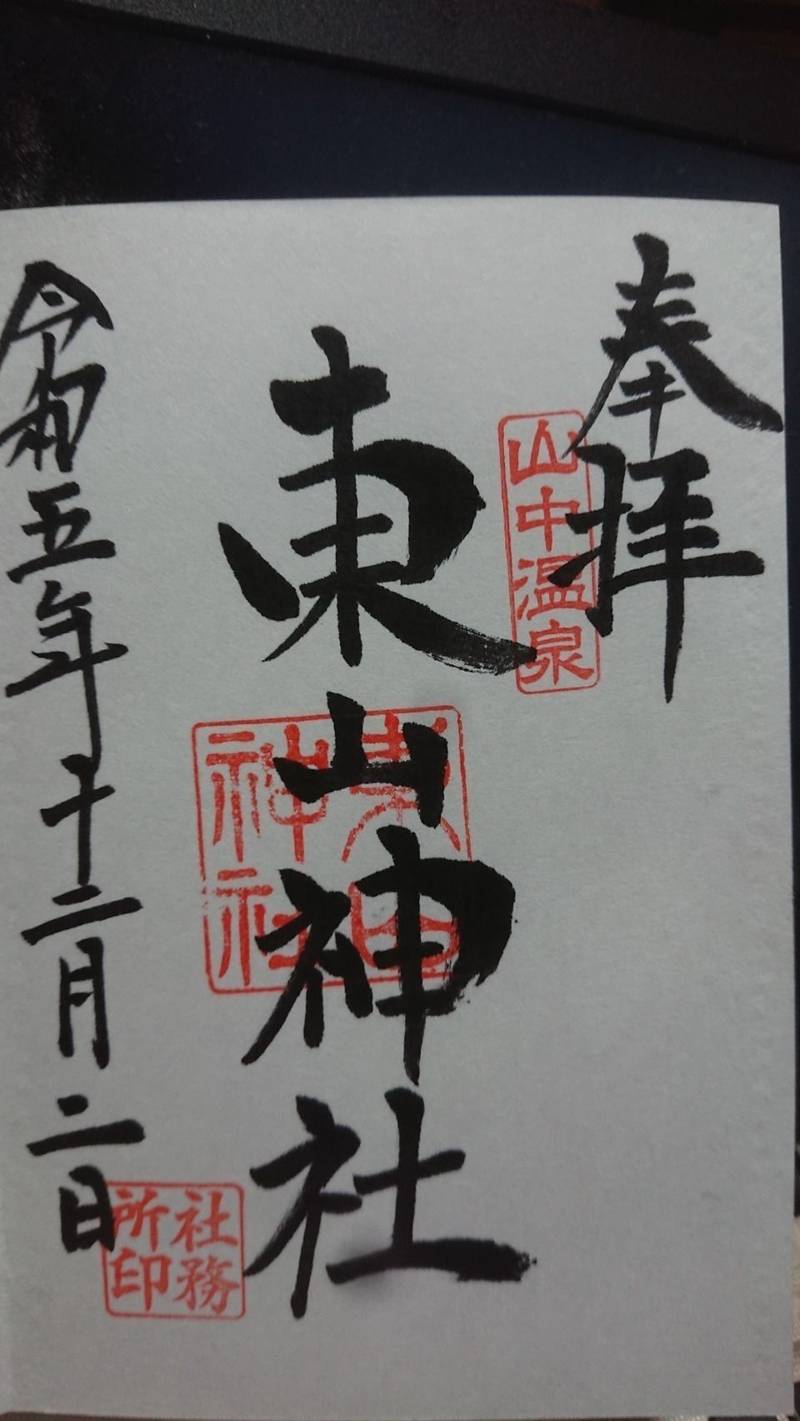 奉拝
山中温泉
東山神社
東山神社
令和五年十二月二日
社務所印